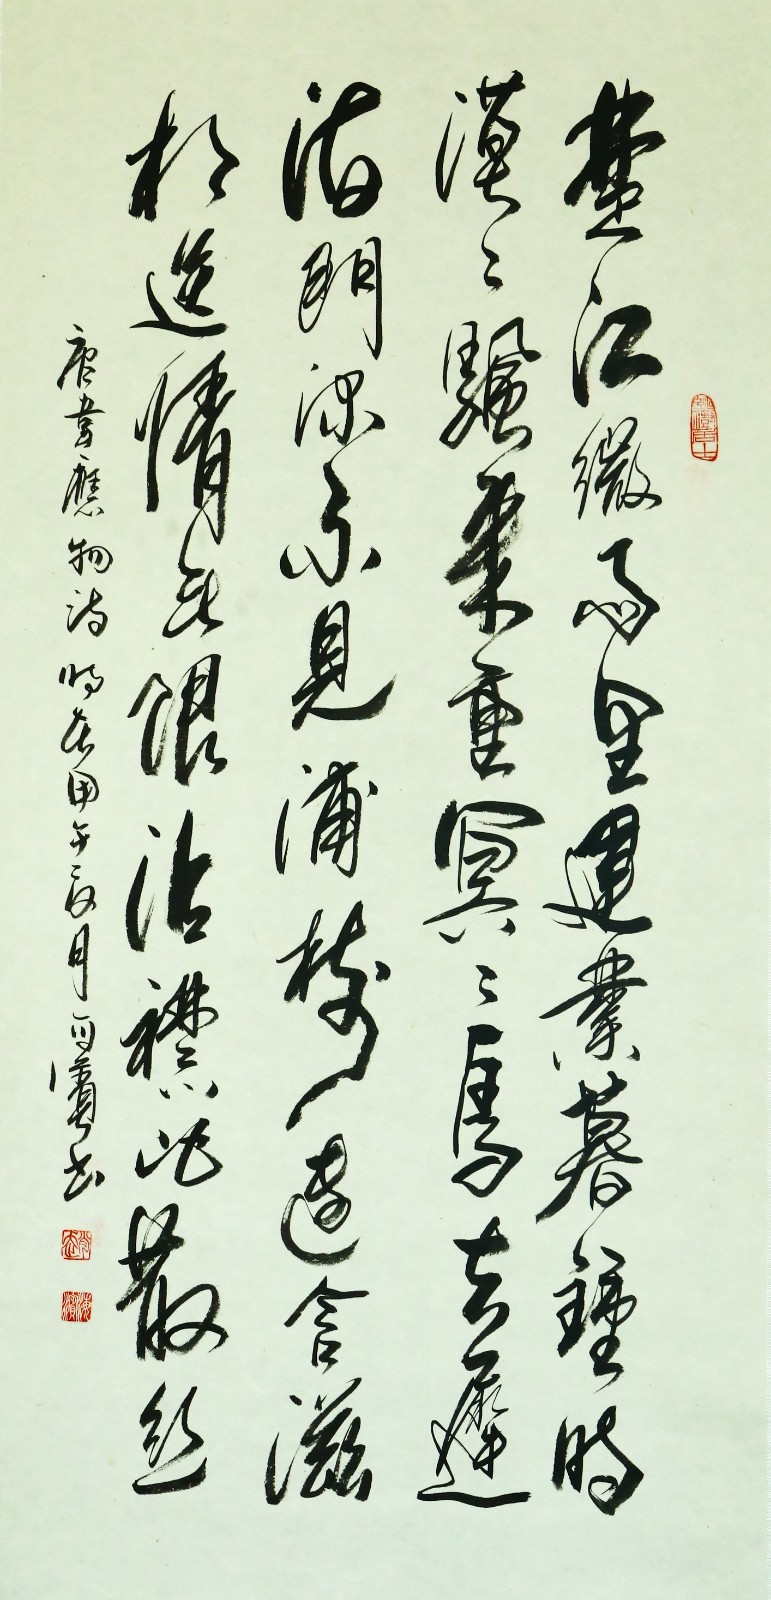 楚江微雨里建業暮鐘時
漠〻颿來重冥〻鳥去遲
海門深不見浦樹遠含滋
相送情無限沾襟比散絲
唐韋應物詩時在甲午月書